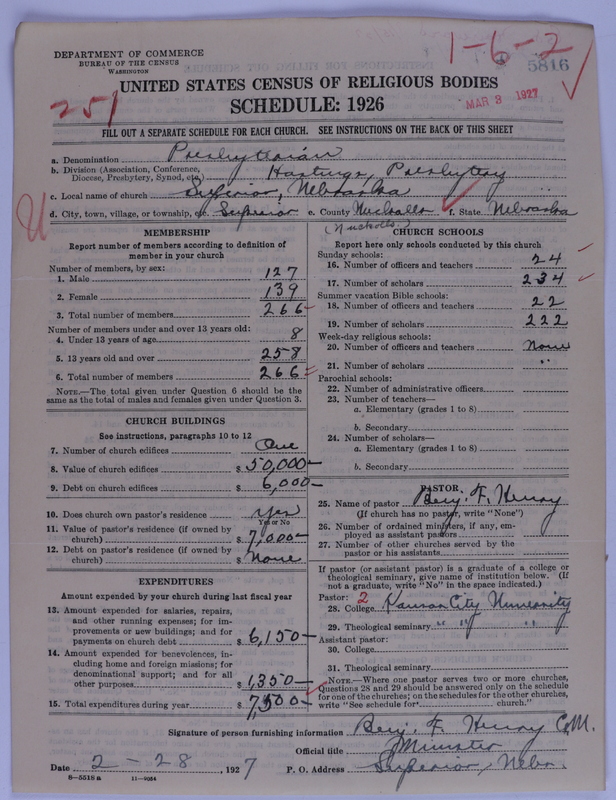 DEPARTMENT OF COMMERCE
BUREAU OF THE CENSUS
WASHINGTON
1-6-2
5816
UNITED STATES CENSUS OF RELIGIOUS BODIES
SCHEDULE: 1926
MAR 3 1927
251
FILL OUT A SEPARATE SCHEDULE FOR EACH CHURCH. SEE INSTRUCTIONS ON THE BACK OF THIS SHEET
a. Denomination Presbyterian
b. Division (Association, Conference, Diocese, Presbytery, Synod, etc.) Hastings, Presbytery
c. Local name of church Superior, Nebraska
d. City, town, village, or township, etc. Superior e. County Nuckolls f. State Nebraska
(Nuckolls)
MEMBERSHIP
Report number of members according to definition of
member in your church
Number of members, by sex:
1. Male 127
2. Female 139
3. Total number of members 266
Number of members under and over 13 years old:
4. Under 13 years of age 8
5. 13 years old and over 258
6. Total number of members 266
NOTE.—The total given under Question 6 should be
same as the total of males and females given under Question 3.
CHURCH BUILDINGS
See instructions, paragraphs 10 to 12
7. Number of church edifices One
8. Value of church edifices $ 50,000-
9. Debt on church edifices $ 6,000-
10. Does church own pastor's residence yes
Yes or No
11. Value of pastor's residence (if owned by
church) $ 7,000-
12. Debt on pastor's residence (if owned by
church) $ None
EXPENDITURES
Amount expended by your church during last fiscal year
13. Amount expended for salaries, repairs,
and other running expenses; for im-
provements or new buildings; and for
payments on church debt $ 6,150-
14. Amount expended for benevolences, in-
cluding home and foreign missions; for
denominational support; and for all
other purposes $ 1,350-
15. Total expenditures during year $ 7,500-
CHURCH SCHOOLS
Report here only schools conducted by this church
Sunday schools:
16. Number of officers and teachers 24
17. Number of scholars 234
Summer vacation Bible schools:
18. Number of officers and teachers 22
19. Number of scholars 222
Week-day religious schools:
20. Number of officers and teachers None
21. Number of scholars "
Parochial schools:
22. Number of administrative officers
23. Number of teachers—
a. Elementary (grades 1 to 8)
b. Secondary
24. Number of scholars—
a. Elementary (grades 1 to 8)
b. Secondary
PASTOR
25. Name of pastor Benj. F. Henry
(If church has no pastor, write "None")
26. Number of ordained ministers, if any, em-
ployed as assistant pastors
27. Number of other churches served by the
pastor or his assistants
If pastor (or assistant pastor) is a graduate of a college or
theological seminary, give name of institution below. (If
not a graduate, write "No" in the space indicated.)
Pastor: 2
28. College Kansas City University
29. Theological seminary " " "
Assistant pastor:
30. College
31. Theological seminary
NOTE.—Where one pastor serves two or more churches,
Questions 28 and 29 should be answered only on the schedule
for one of the churches; on the schedules for the other churches,
write "See schedule for church."
Signature of person furnishing information Benj. F. Henry
Official title Minister
Date 2-28, 1927 P. O. Address Superior, Nebr.
8-5518a 11-9054